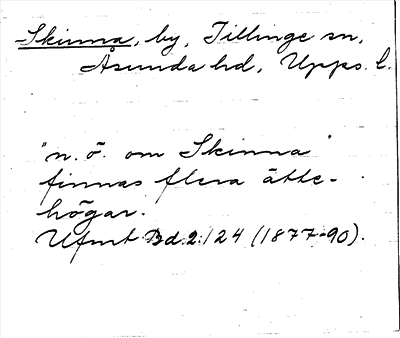 Skinna, by, Tillinge sn,
Åsunda hd, Upps. l.
"n. ö. om Skinna"
finnas flera ätte-
högar.
Ufmt Bd. 2:124 (1877-90).